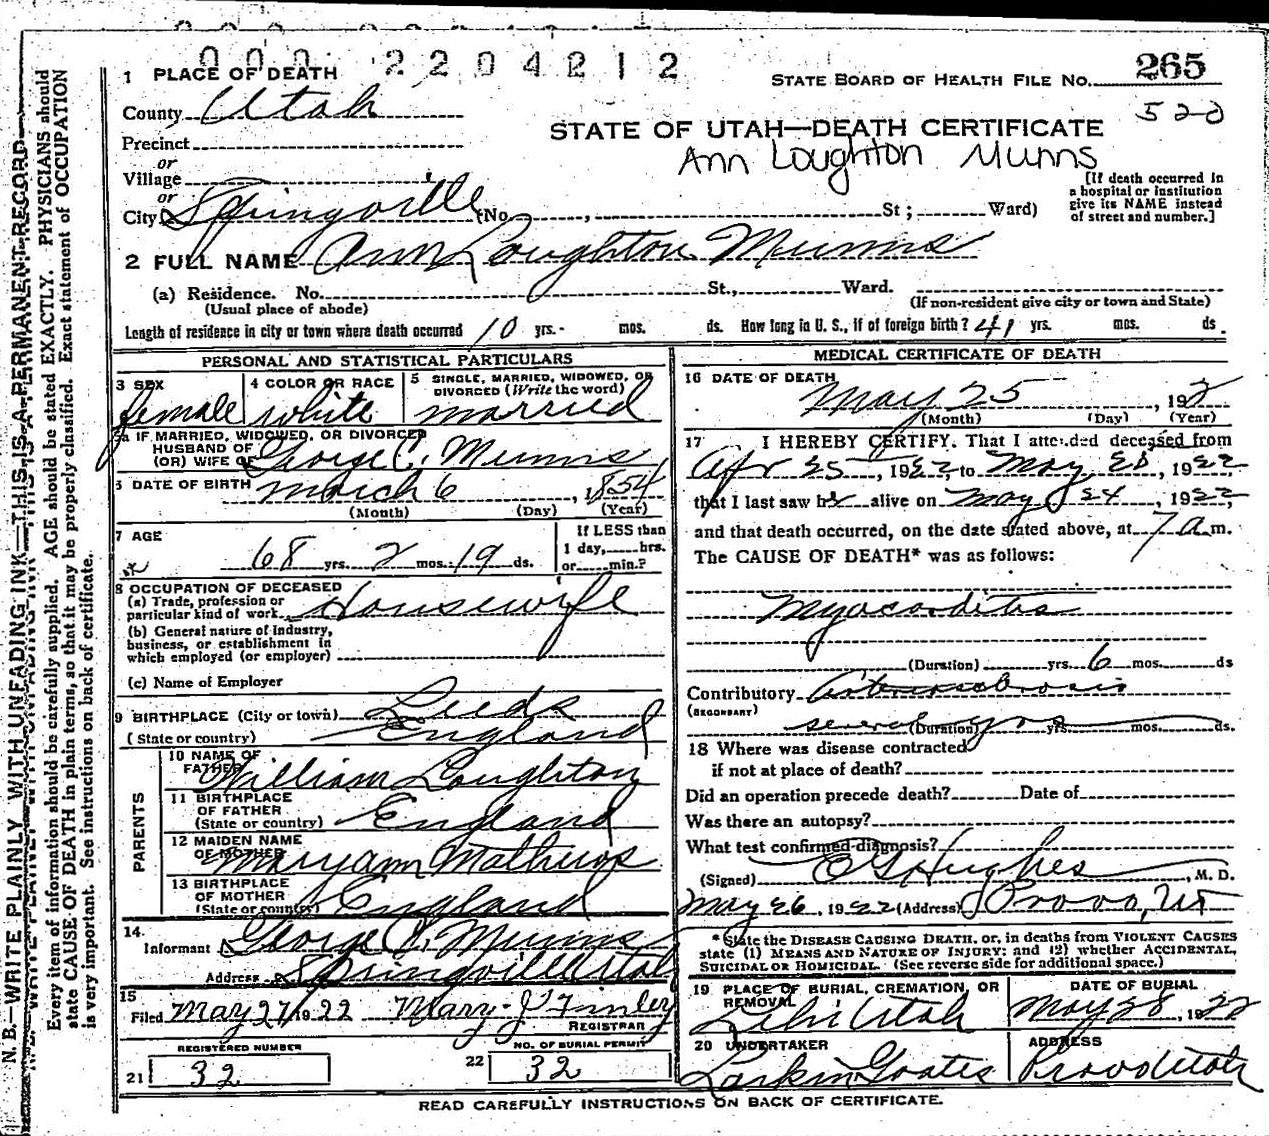 000 2204212
1 PLACE OF DEATH
STATE BOARD OF HEALTH FILE NO. 265
County Utah
520
STATE OF UTAH—DEATH CERTIFICATE
Precinct
Ann Loughton Munns
or
Village
or
City Springville (No. , St; Ward)
[If death occurred in
a hospital or institution
give its NAME instead
of street and number.]
2 FULL NAME Ann Loughton Munns
(a) Residence. No. St., Ward.
(Usual place of abode) (If non-resident give city or town and State)
Length of residence in city or town where death occurred 10 yrs. - mos. ds. How long in U. S., if of foreign birth? 41 yrs. mos. ds.
PERSONAL AND STATISTICAL PARTICULARS
3 SEX female
4 COLOR OR RACE white
5 SINGLE, MARRIED, WIDOWED, OR
DIVORCED (Write the word)
married
5a IF MARRIED, WIDOWED, OR DIVORCED
HUSBAND OF
(OR) WIFE OF George C. Munns
6 DATE OF BIRTH March 6, 1854
(Month) (Day) (Year)
7 AGE
68 yrs. 2 mos. 19 ds.
If LESS than
1 day, hrs.
or min.?
8 OCCUPATION OF DECEASED
(a) Trade, profession or
particular kind of work Housewife
(b) General nature of industry,
business, or establishment in
which employed (or employer)
(c) Name of Employer
9 BIRTHPLACE (City or town) Leeds
(State or country) England
PARENTS
10 NAME OF
FATHER William Loughton
11 BIRTHPLACE
OF FATHER
(State or country) England
12 MAIDEN NAME
OF MOTHER Maryann Mathews
13 BIRTHPLACE
OF MOTHER
(State or country) England
14
Informant George C. Munns
Address Springville Utah
15
Filed May 27 1922 Mary J Finley
REGISTRAR
REGISTERED NUMBER
21 32
NO. OF BURIAL PERMIT
22 32
MEDICAL CERTIFICATE OF DEATH
16 DATE OF DEATH
May 25, 192
(Month) (Day) (Year)
17 I HEREBY CERTIFY. That I attended deceased from
Apr 25, 1922, to May 25, 1922
that I last saw her alive on May 24, 1922,
and that death occurred, on the date stated above, at 7 a m.
The CAUSE OF DEATH* was as follows:
Myocarditis
(Duration) yrs. 6 mos. ds
Contributory Arteriosclerosis
(SECONDARY)
several yrs (Duration) yrs. mos. ds.
18 Where was disease contracted
if not at place of death?
Did an operation precede death? Date of
Was there an autopsy?
What test confirmed diagnosis?
(Signed) E G Hughes, M. D.
May 26, 1922 (Address) Provo, Ut
*State the DISEASE CAUSING DEATH, or, in deaths from VIOLENT CAUSES
state (1) MEANS AND NATURE OF INJURY; and (2) whether ACCIDENTAL,
SUICIDAL OR HOMICIDAL. (See reverse side for additional space.)
19 PLACE OF BURIAL, CREMATION, OR
REMOVAL
Lehi Utah
DATE OF BURIAL
May 28, 1922
20 UNDERTAKER
Larkin Goates
ADDRESS
Provo Utah
READ CAREFULLY INSTRUCTIONS ON BACK OF CERTIFICATE.
N. B.—WRITE PLAINLY WITH UNFADING INK—THIS IS A PERMANENT RECORD
Every item of information should be carefully supplied. AGE should be stated EXACTLY. PHYSICIANS should
state CAUSE OF DEATH in plain terms, so that it may be properly classified. Exact statement of OCCUPATION
is very important. See instructions on back of certificate.